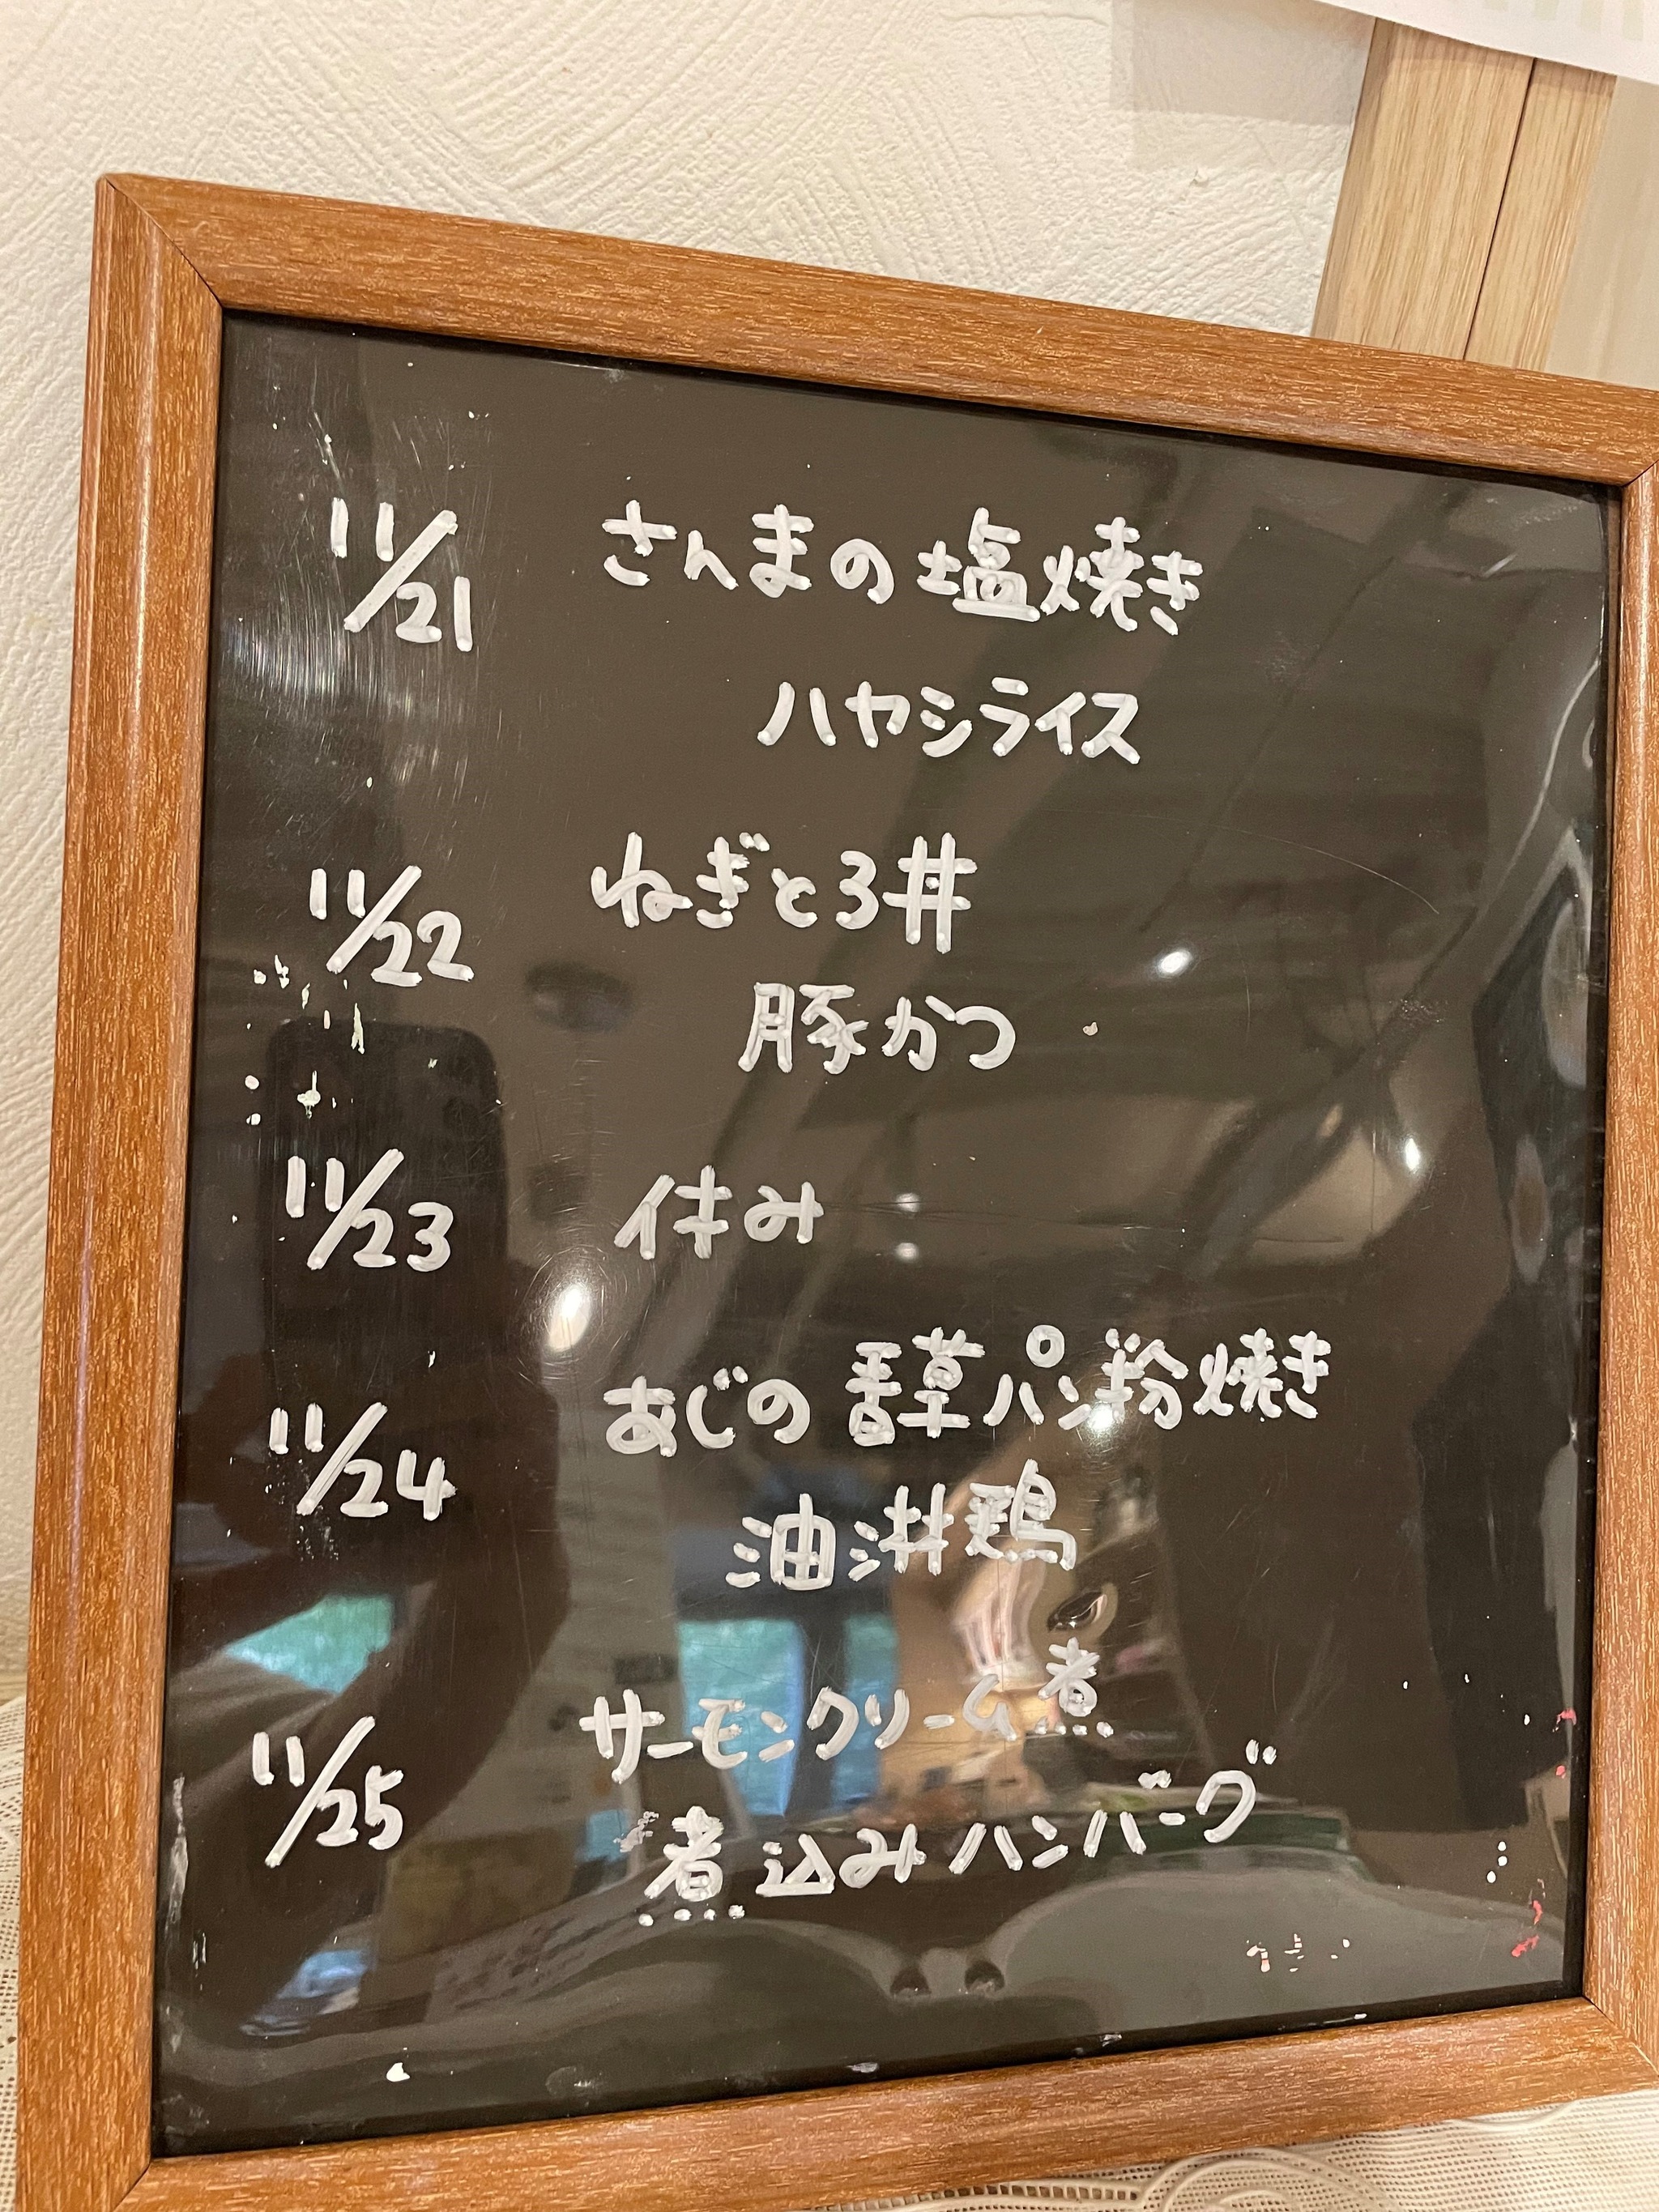 11/21 さんまの塩焼き
ハヤシライス
11/22 ねぎとろ丼
豚かつ
11/23 休み
11/24 あじの香草パン粉焼き
油淋鶏
11/25 サーモンクリーム煮
煮込みハンバーグ